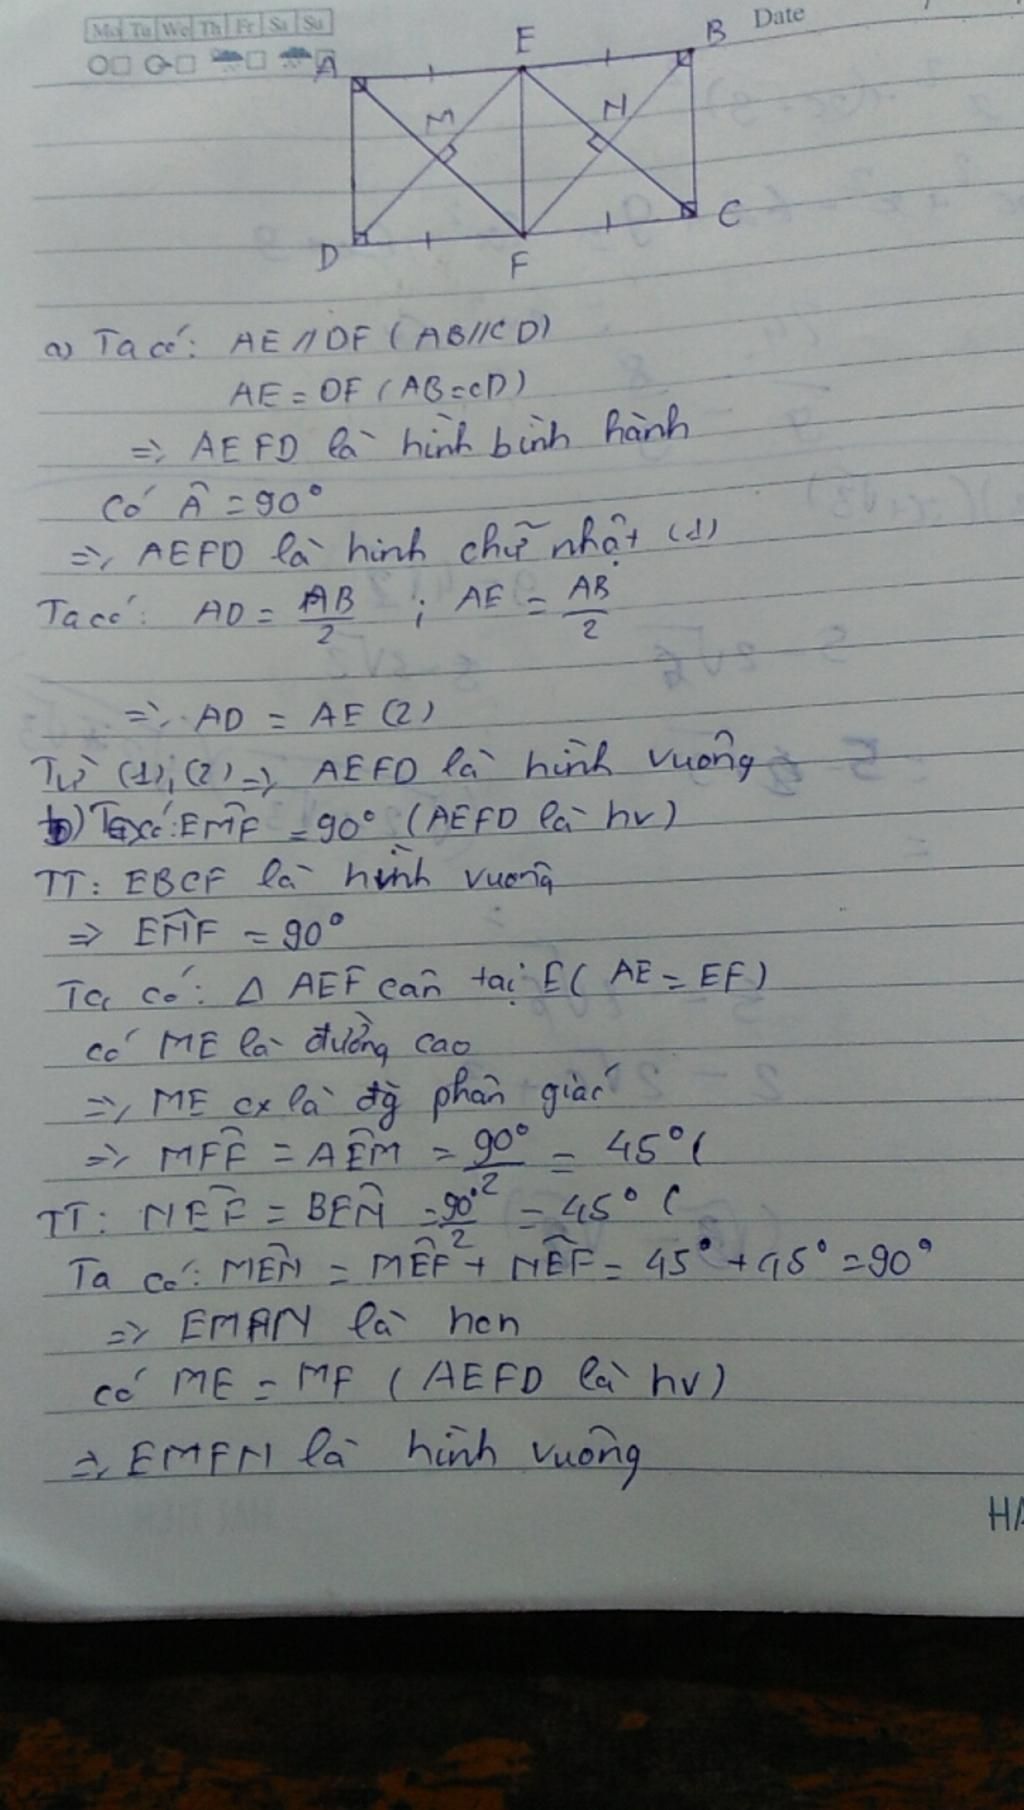 Mo Tu We Th Fr Sa Su
Date
A E B
M N
D F C
a) Ta có: AE // DF ( AB//CD)
AE = DF ( AB=CD)
=> AEFD là hình bình hành
Có Â = 90°
=> AEFD là hình chữ nhật (1)
Ta có: AD = AB/2 ; AE = AB/2
=> AD = AE (2)
Từ (1), (2) => AEFD là hình vuông
b) Ta có: EM̂F = 90° (AEFD là hv)
TT: EBCF là hình vuông
=> EN̂F = 90°
Ta có: Δ AEF cân tại E( AE = EF)
có ME là đường cao
=> ME cx là đg phân giác
=> MÊF = AÊM = 90°/2 = 45° (
TT: NÊF = BÊN = 90°/2 = 45° (
Ta có: MÊN = MÊF + NÊF = 45° + 45° = 90°
=> EMFN là hcn
có ME = MF ( AEFD là hv)
=> EMFN là hình vuông
HA